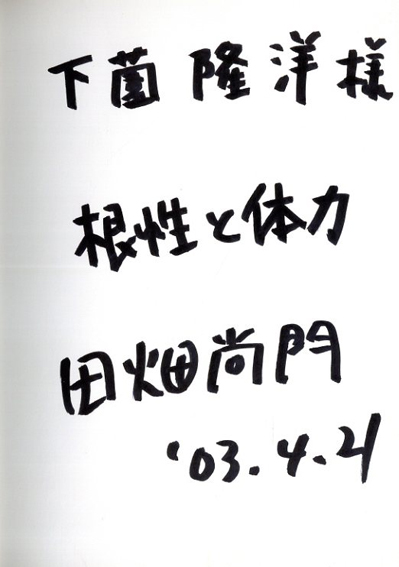 下薗 隆洋様
根性と体力
田畑尚門
'03.4.21